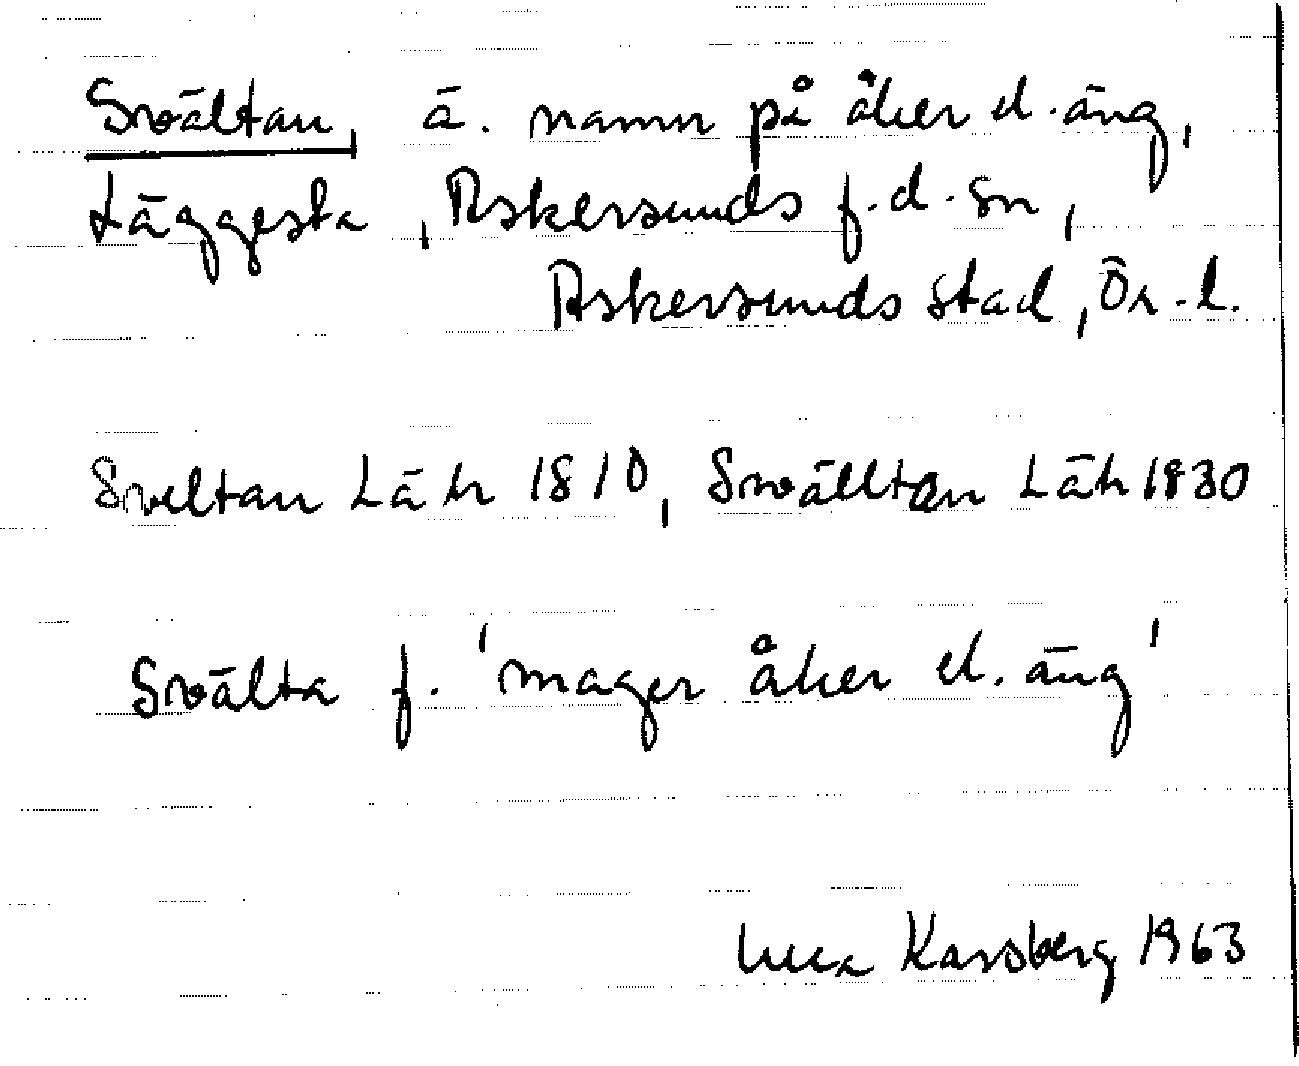 Svältan, ä. namn på åker el. äng,
Läggesta, Askersunds f.d. sn,
Askersunds stad, Ör. l.
Sveltan LäH 1810, Swälltan LäH 1830
Svälta f. 'mager åker el. äng'
Karsberg 1963